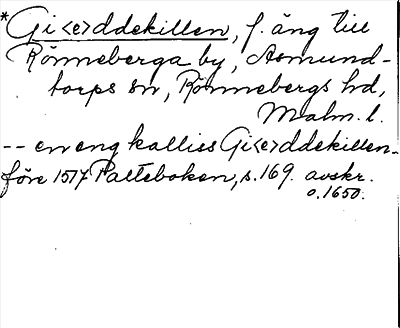 *Gi<e>ddekillen, f. äng till
Rönneberga by, Asmund-
torps sn, Rönnebergs hd,
Malm. l.
-- en eng kalliss Gi<e>ddekillen.
före 1517 Palteboken, s. 169. avskr.
o. 1650.